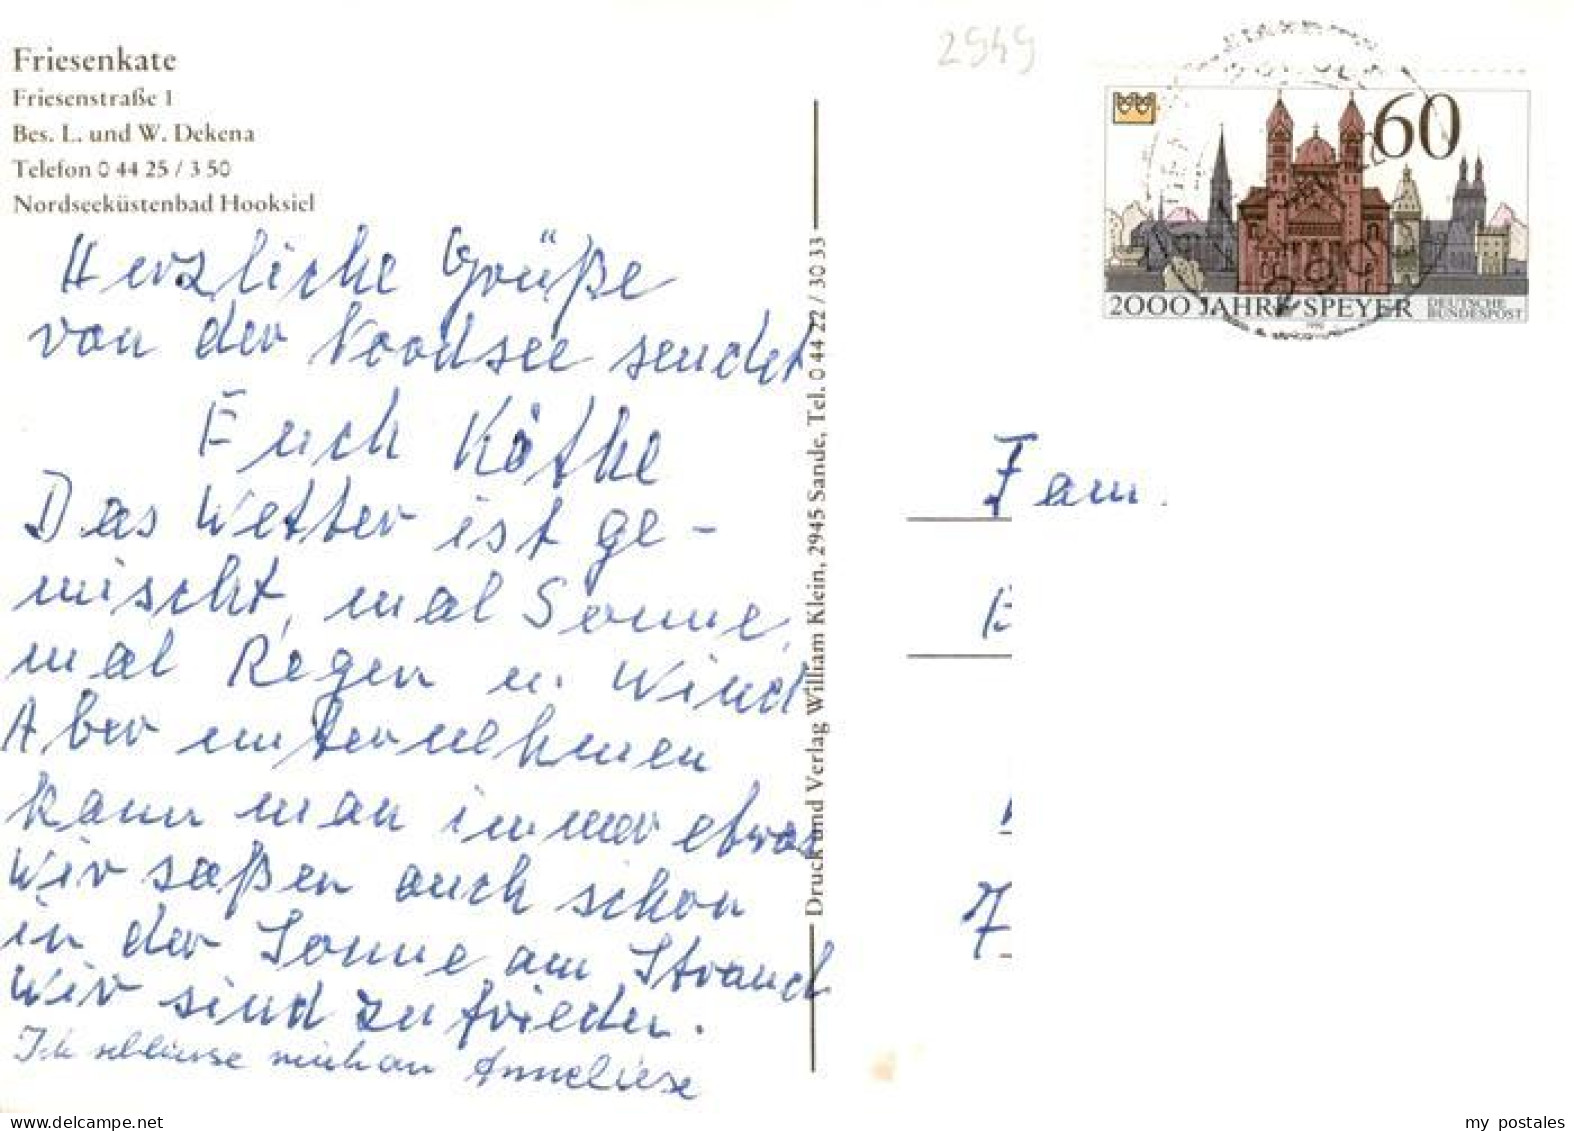 Friesenkate
Friesenstraße 1
Bes. L. und W. Dekena
Telefon 0 44 25 / 3 50
Nordseeküstenbad Hooksiel
Herzliche Grüße
von der Noordsee sendet
Euch Köthe
Das Wetter ist ge-
mischt, mal Sonne,
mal Regen u. Wind
Aber unternehmen
kann man immer etwas
Wir saßen auch schon
in der Sonne am Strand
Wir sind zufrieden.
Ich schliesse mich an Anneliese
Druck und Verlag William Klein, 2945 Sande, Tel. 0 44 22 / 30 33
2949
60
2000 JAHRE SPEYER
DEUTSCHE
BUNDESPOST
1990
Fam.
E
7
www.delcampe.net
my_postales